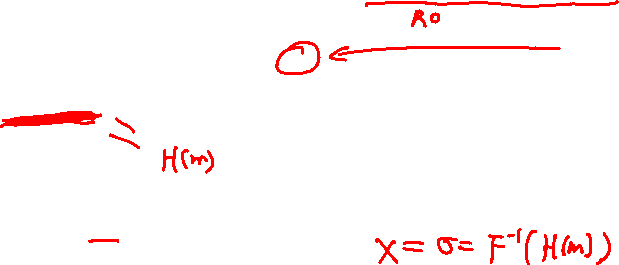 RO
H(m)
X = σ = F⁻¹(H(m))